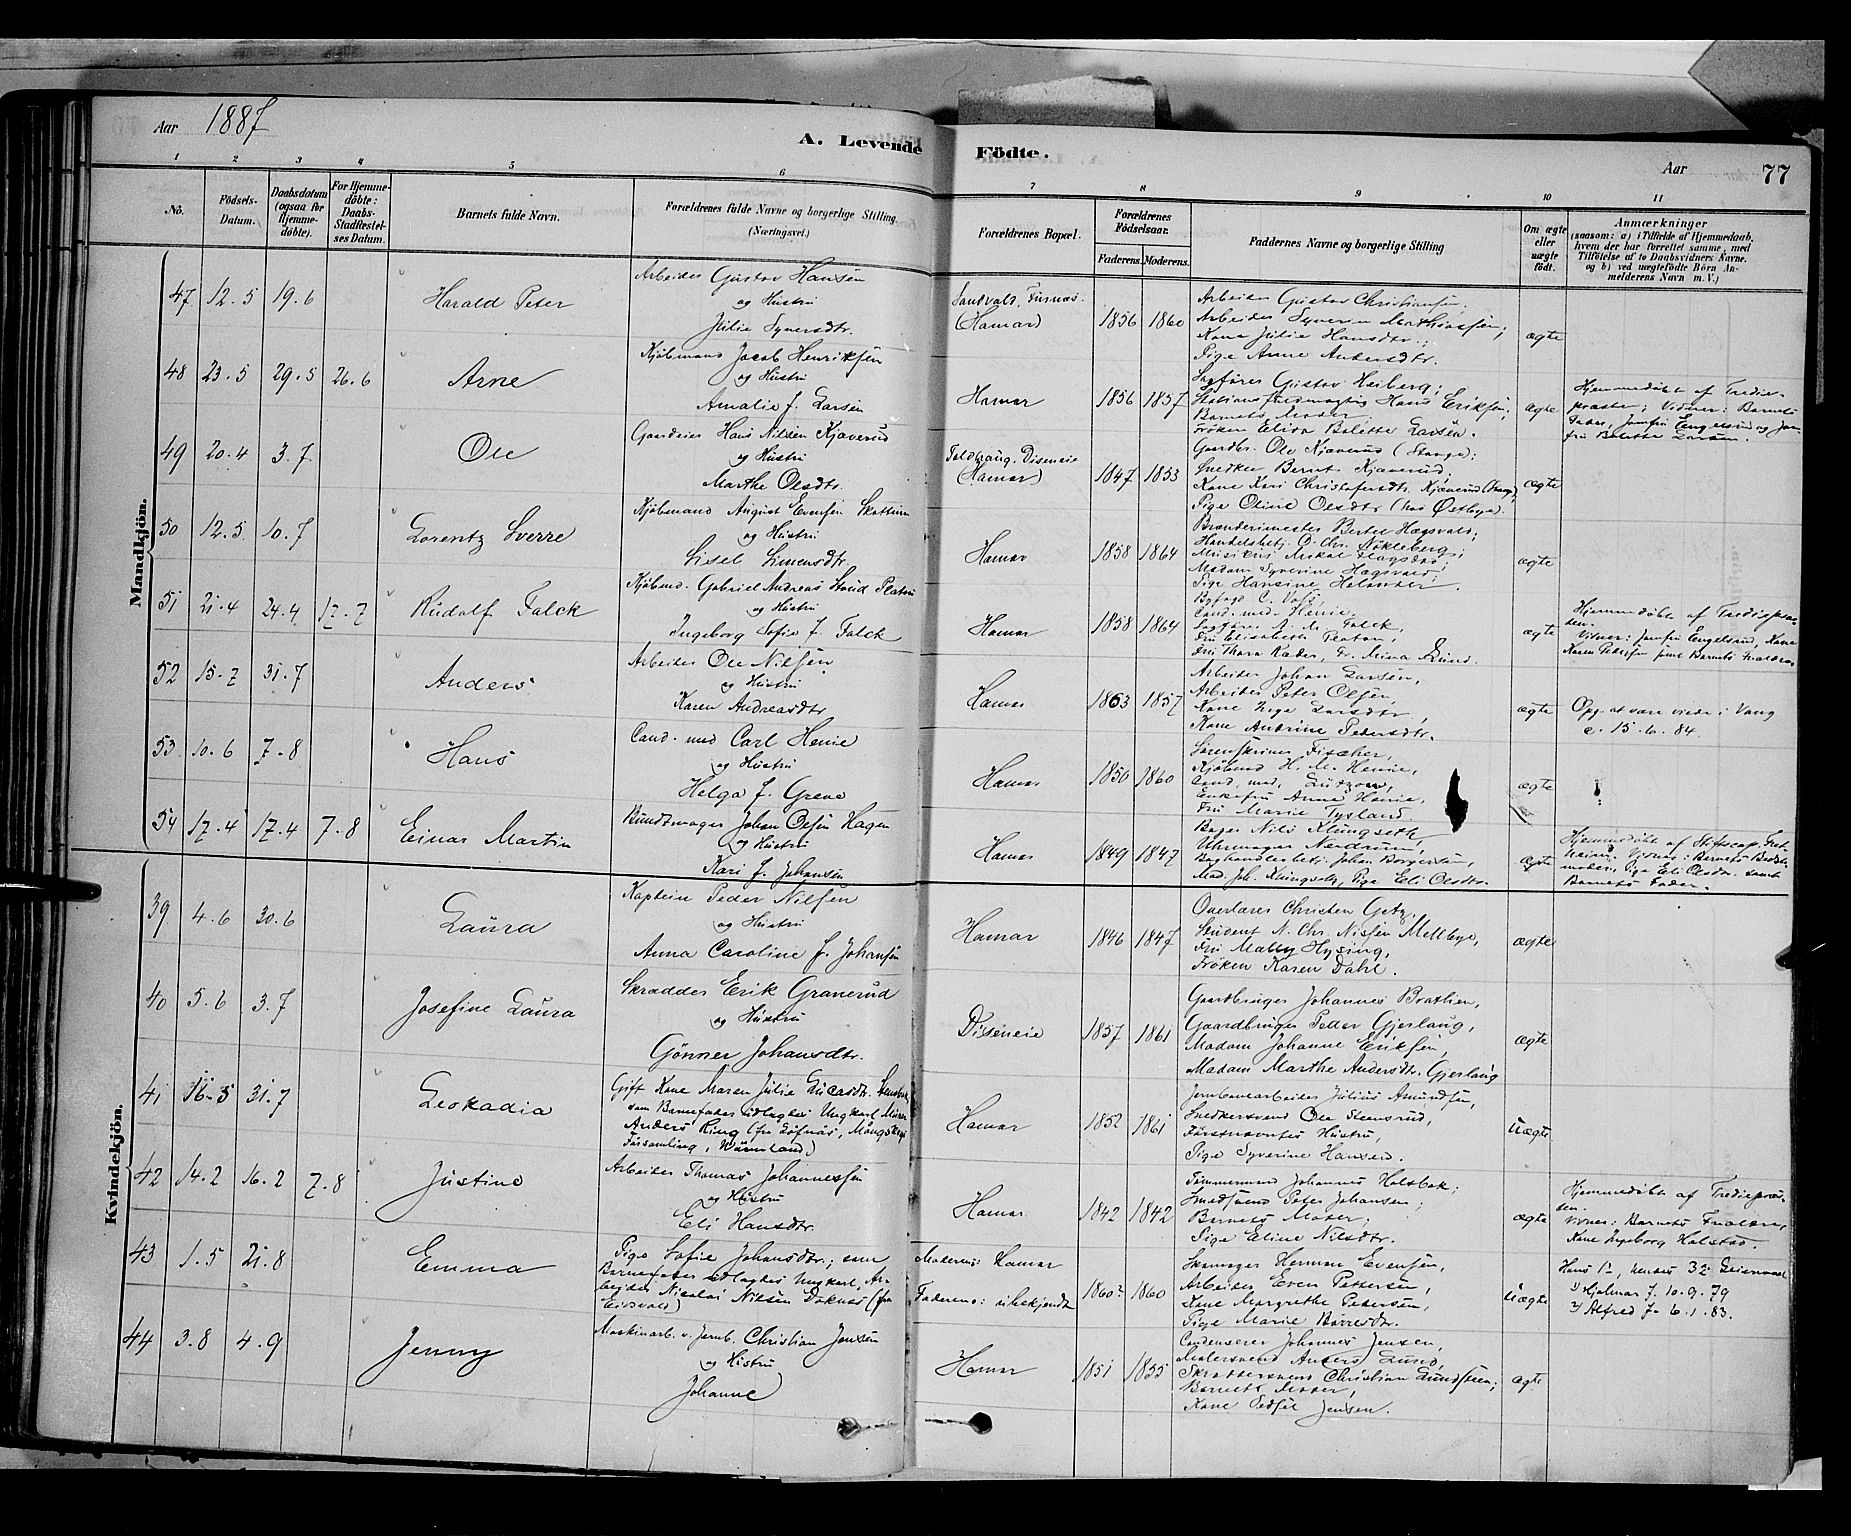 Aar 1887
A. Levende Födte.
Aar 77
1 2 3 4 5 6 7 8 9 10 11
No.
Födsels-Datum.
Daabsdatum (ogsaa for Hjemme-döbte).
For Hjemme-döbte: Daabs-Stadfæstel-ses Datum.
Barnets fulde Navn.
Forældrenes fulde Navne og borgerlige Stilling. (Næringsvei.)
Forældrenes Bopæl.
Forældrenes Födselsaar.
Faderens. Moderens.
Faddernes Navne og borgerlige Stilling
Om ægte eller uægte födt.
Anmærkninger
(saasom: a) i Tilfælde af Hjemmedaab,
hvem der har forrettet samme, med
Tilföielse af to Daabsvidners Navne.
og b) ved uægtefödte Börn An-
melderens Navn m. V.)
Mandkjön.
47 12.5 19.6
Harald Peter
Arbeider Gustav Hansen
og Hustru
Julie Syversdtr.
Sandvald, Furnæs
(Hamar)
1856 1860
Arbeider Gustav Christiansen,
Arbeider Syverin Mathiassen;
Kone Julie Hansdtr.;
Pige Anne Andersdtr.
ægte
48 23.5 29.5 26.6
Arne
Kjøbmand Jacob Henriksen
og Hustru
Amalie f. Larsen
Hamar
1856 1857
Sagfører Gustav Heiberg;
Stationsfuldmægtig Hans Eriksen,
Barnets Moder
Frøken Elisa Bolette Larsen.
ægte
Hjemmedøbt af Tredie-
præsten; Vidner: Barnets
Fader, Jomfru Engelsrud og Jom-
fru Bolette Larsen.
49 20.4 3.7
Ole
Gaardeier Hans Nilsen Kjæverud
og Hustru
Marthe Olsdtr.
Foldhaug, Diseneie
(Hamar)
1847 1853
Gaardbr. Ole Kjæverud (Stange);
Snedker Bernt Kjæverud,
Kone Kari Christofersdtr. Kjæverud (Stange)
Pige Oline Olsdtr (hos Østbye).
ægte
50 12.5 10.7
Lorentz Sverre
Kjøbmand August Evensen Skattum
og Hustru
Lisel Simensdtr
Hamar
1858 1864
Brænderimester Bertel Hagsvold;
Handelsbetj. O. Chr. Nøkleberg;
Madam Syverine Hagsvold;
Pige Hansine
ægte
51 21.4 24.4 17.7
Rudolf Falck
Kjøbmd. Gabriel Andreas Stoud Platou
og Hustru
Ingeborg Sofie f. Falck
Hamar
1858 1864
Byfogd C.
Cand. med. Henie,
Sagfører A. M. Falck,
Fru Elisabeth Platou,
Fru Thora Ræder, Fr. Mina Lund.
ægte
Hjemmedøbt af Trediepræ-
sten.
Vidner: Jomfru Engelsrud, Kone
Karen Pedersen samt Barnets Forældre
52 15.7 31.7
Anders
Arbeider Ole Nilsen
og Hustru
Karen Andreasdtr
Hamar
1863 1857
Arbeider Johan Larsen,
Arbeider Peter Olsen,
Kone Inga Larsdtr,
Kone Andrine Pedersdtr.
ægte
Opg. at være viede i Vang
c. 15.6.84.
53 10.6 7.8
Hans
Cand. med Carl Henie
og Hustru
Helga f. Greve
Hamar
1850 1860
Sorenskriver Fischer,
Kjøbmd H. M. Henie,
Cand. med. Lützow,
Enkefru Anne Henie,
Fru Marie Tysland.
ægte
54 17.4 17.4 7.8
Einar Martin
Bundtmager Johan Olsen Hagen
og Hustru
Kari f. Johansen
Hamar
1849 1847
Bager Nils Klungseth
Uhrmager Nordrum,
Boghandlerbetj. Johan Borgersen,
Mad. Joh. Klungseth, Pige Eli Olsdtr.
ægte
Hjemmedøbt af Stiftscap.
Vidner: Barnets Bedste-
moder, Pige Eli Olsdtr. samt
Barnets Fader.
Kvindekjön.
39 4.6 30.6
Laura
Kaptein Peder Nilsen
og Hustru
Anna Caroline f. Johansen
Hamar
1846 1847
Overlærer Christen Getz,
Student N. Chr. Nissen Mellbye,
Fru Mally Hysing,
Frøken Karen Dahl.
ægte
40 5.6 3.7
Josefine Laura
Skrædder Erik Granerud
og Hustru
Gønner Johansdtr.
Diseneie
1857 1861
Gaardbruger Johannes Brathen,
Gaardbruger Petter Gjerlaug,
Madam Johanne Eriksen,
Madam Marthe Andersdtr. Gjerlaug
ægte
41 16.5 31.7
Leokadia
Gift Kone Maren Julie Lucasdtr.
som Barnefader udlagdes Ungkarl Murer
Anders Ring (fra Löfnäs, Mangskogs
Församling, Värmland)
Hamar
1852 1861
Jernbanearbeider Julius Amundsen,
Snedkersvend Ole Stensrud,
Førstnævntes Hustru,
Pige Syverine Hansen.
uægte
42 14.2 16.2 7.8
Justine
Arbeider Thomas Johannessen
og Hustru
Eli Hansdtr.
Hamar
1842 1842
Tømmermand Johannes Holsbak;
Smedsvend Peter Johansen;
Barnets Moder;
Pige Eline Nilsdtr.
ægte
Hjemmedøbt af Trediepræ-
sten.
Vidner: Barnets Forældre,
Kone Ingeborg Holstad.
43 1.5 21.8
Emma
Pige Sofie Johansdtr.; som
Barnefader udlagdes Ungkarl, Ar-
beider Nicolai Nilsen Doknes (fra
Eidsvold)
Moderens: Hamar
Faderens: ubekjendt
1860? 1860
Skomager Herman Evensen,
Arbeider Even Pettersen,
Kone Margrethe Pedersen,
Pige Marie Børresdtr.
uægte
Hans 1ste, hendes 3die
1) Hjalmar f. 10.9.79
2) Alfred f. 6.1.83.
44 3.8 4.9
Jenny
Maskinarb. v. Jernb. Christian Jensen
og Hustru
Johanne
Hamar
1851 1855
Condenserer Johannes Jensen,
Malersvend Anders Lund,
Skræddersvend Christian Gundersen;
Barnets Moder,
Kone Sedsel Jensen.
ægte